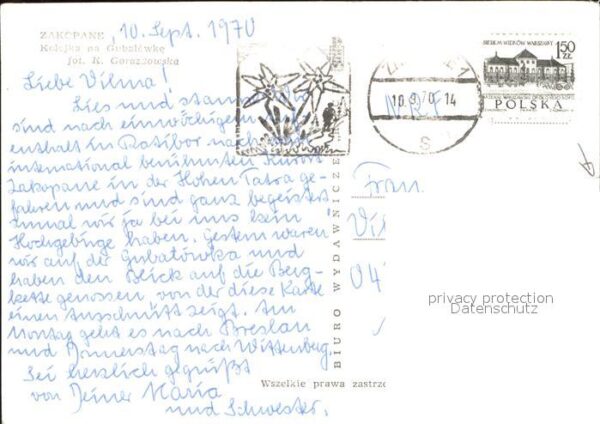 10. Sept. 1970
ZAKOPANE
Kolejka na Gubałówkę
fot. K. Gorazdowska
Liebe Vilma!
Lies und staune, wir
sind nach einwöchigem Auf-
enthalt in Ratibor nach dem
international berühmten Kurort
Zakopane in der Hohen Tatra ge-
fahren und sind ganz begeistert
zumal wir ja bei uns kein
Hochgebirge haben. Gestern waren
wir auf der Gubałówka und
haben den Blick auf die Berg-
kette genossen, von der diese Karte
einen Ausschnitt zeigt. Am
Montag geht es nach Breslau
und Donnerstag nach Wittenberg.
Sei herzlich gegrüßt
von Deiner Maria
und Schwester.
BIURO WYDAWNICZE
Wszelkie prawa zastrze
10.9.70.14
S
1,50 ZŁ
POLSKA
Frau
Vi
04
privacy protection
Datenschutz